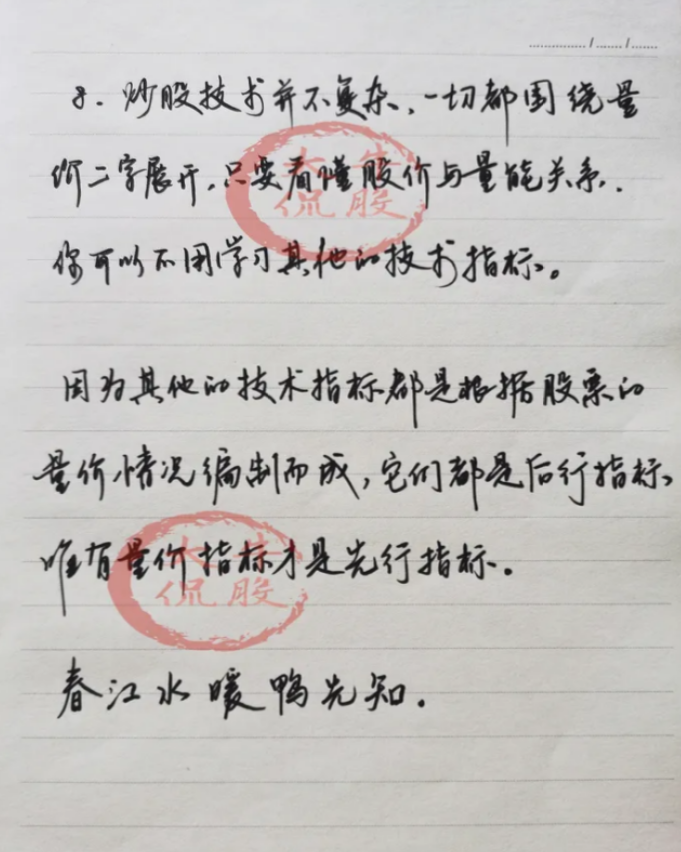 8. 炒股技术并不复杂,一切都围绕量
价二字展开,只要看懂股价与量能关系.
你可以不用学习其他的技术指标。
因为其他的技术指标都是根据股票的
量价情况编制而成,它们都是后行指标、
唯有量价指标才是先行指标。
春江水暖鸭先知.
侃股
侃股